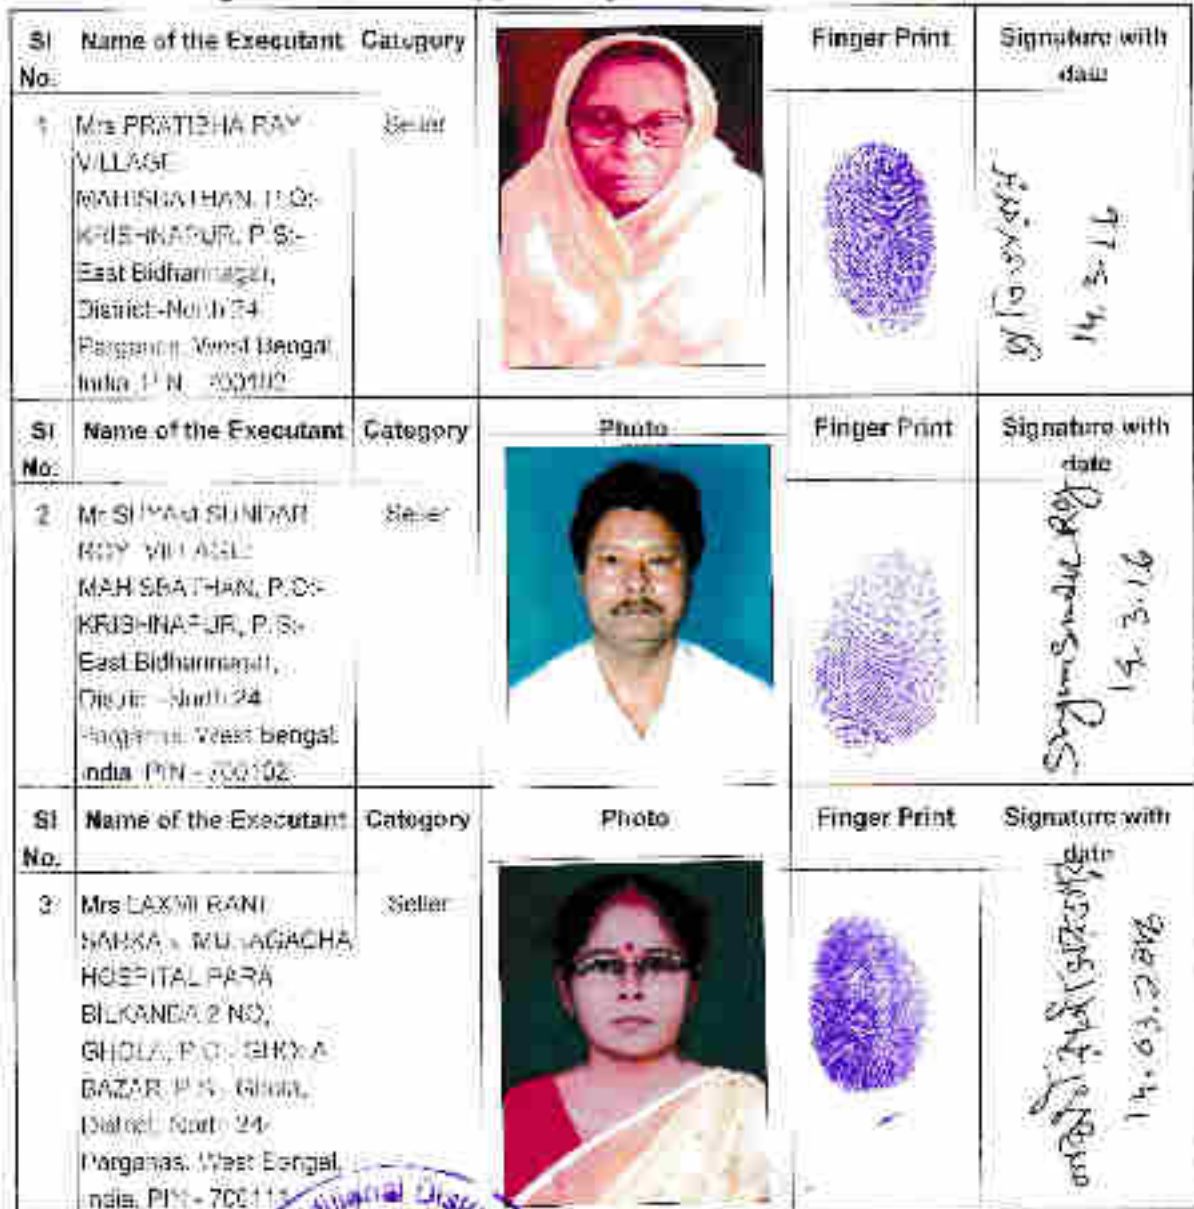 Sl Name of the Executant Category Finger Print Signature with
No. date
1 Mrs PRATIBHA RAY Seller
VILLAGE
MAHISBATHAN, P.O:-
KRISHNAPUR, P.S:-
East Bidhannagar,
District:-North 24
Parganas, West Bengal,
India, PIN - 700102
14.3.16
Sl Name of the Executant Category Photo Finger Print Signature with
No. date
2 Mr SHYAM SUNDAR Seller
ROY VILLAGE:
MAHISBATHAN, P.O:-
KRISHNAPUR, P.S:-
East Bidhannagar,
District:-North 24
Parganas, West Bengal,
India, PIN - 700102
Shyam Sundar Roy
14.3.16
Sl Name of the Executant Category Photo Finger Print Signature with
No. date
3 Mrs LAXMI RANI Seller
SARKAR MURAGACHA
HOSPITAL PARA
BILKANDA 2 NO,
GHOLA, P.O:- GHOLA
BAZAR, P.S:- Ghola,
District:-North 24-
Parganas, West Bengal,
India, PIN -
14.03.2016